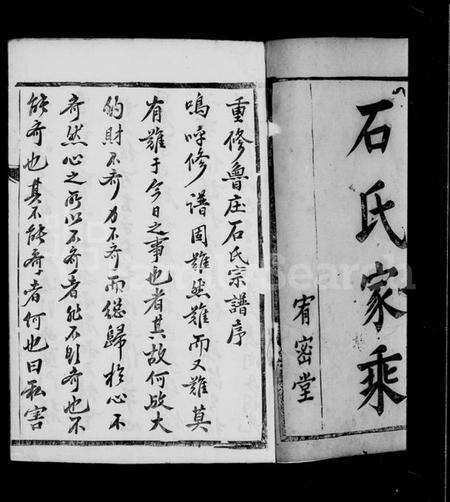 石氏家乘
宥密堂
重修魯庄石氏宗譜序
嗚呼修譜固難然難而又難莫
有難于今日之事也者其故何啟大
約財不齊力不齊而總歸於心不
齊然心之所以不齊者能不影齊也不
能齊也其不能齊者何也曰私害